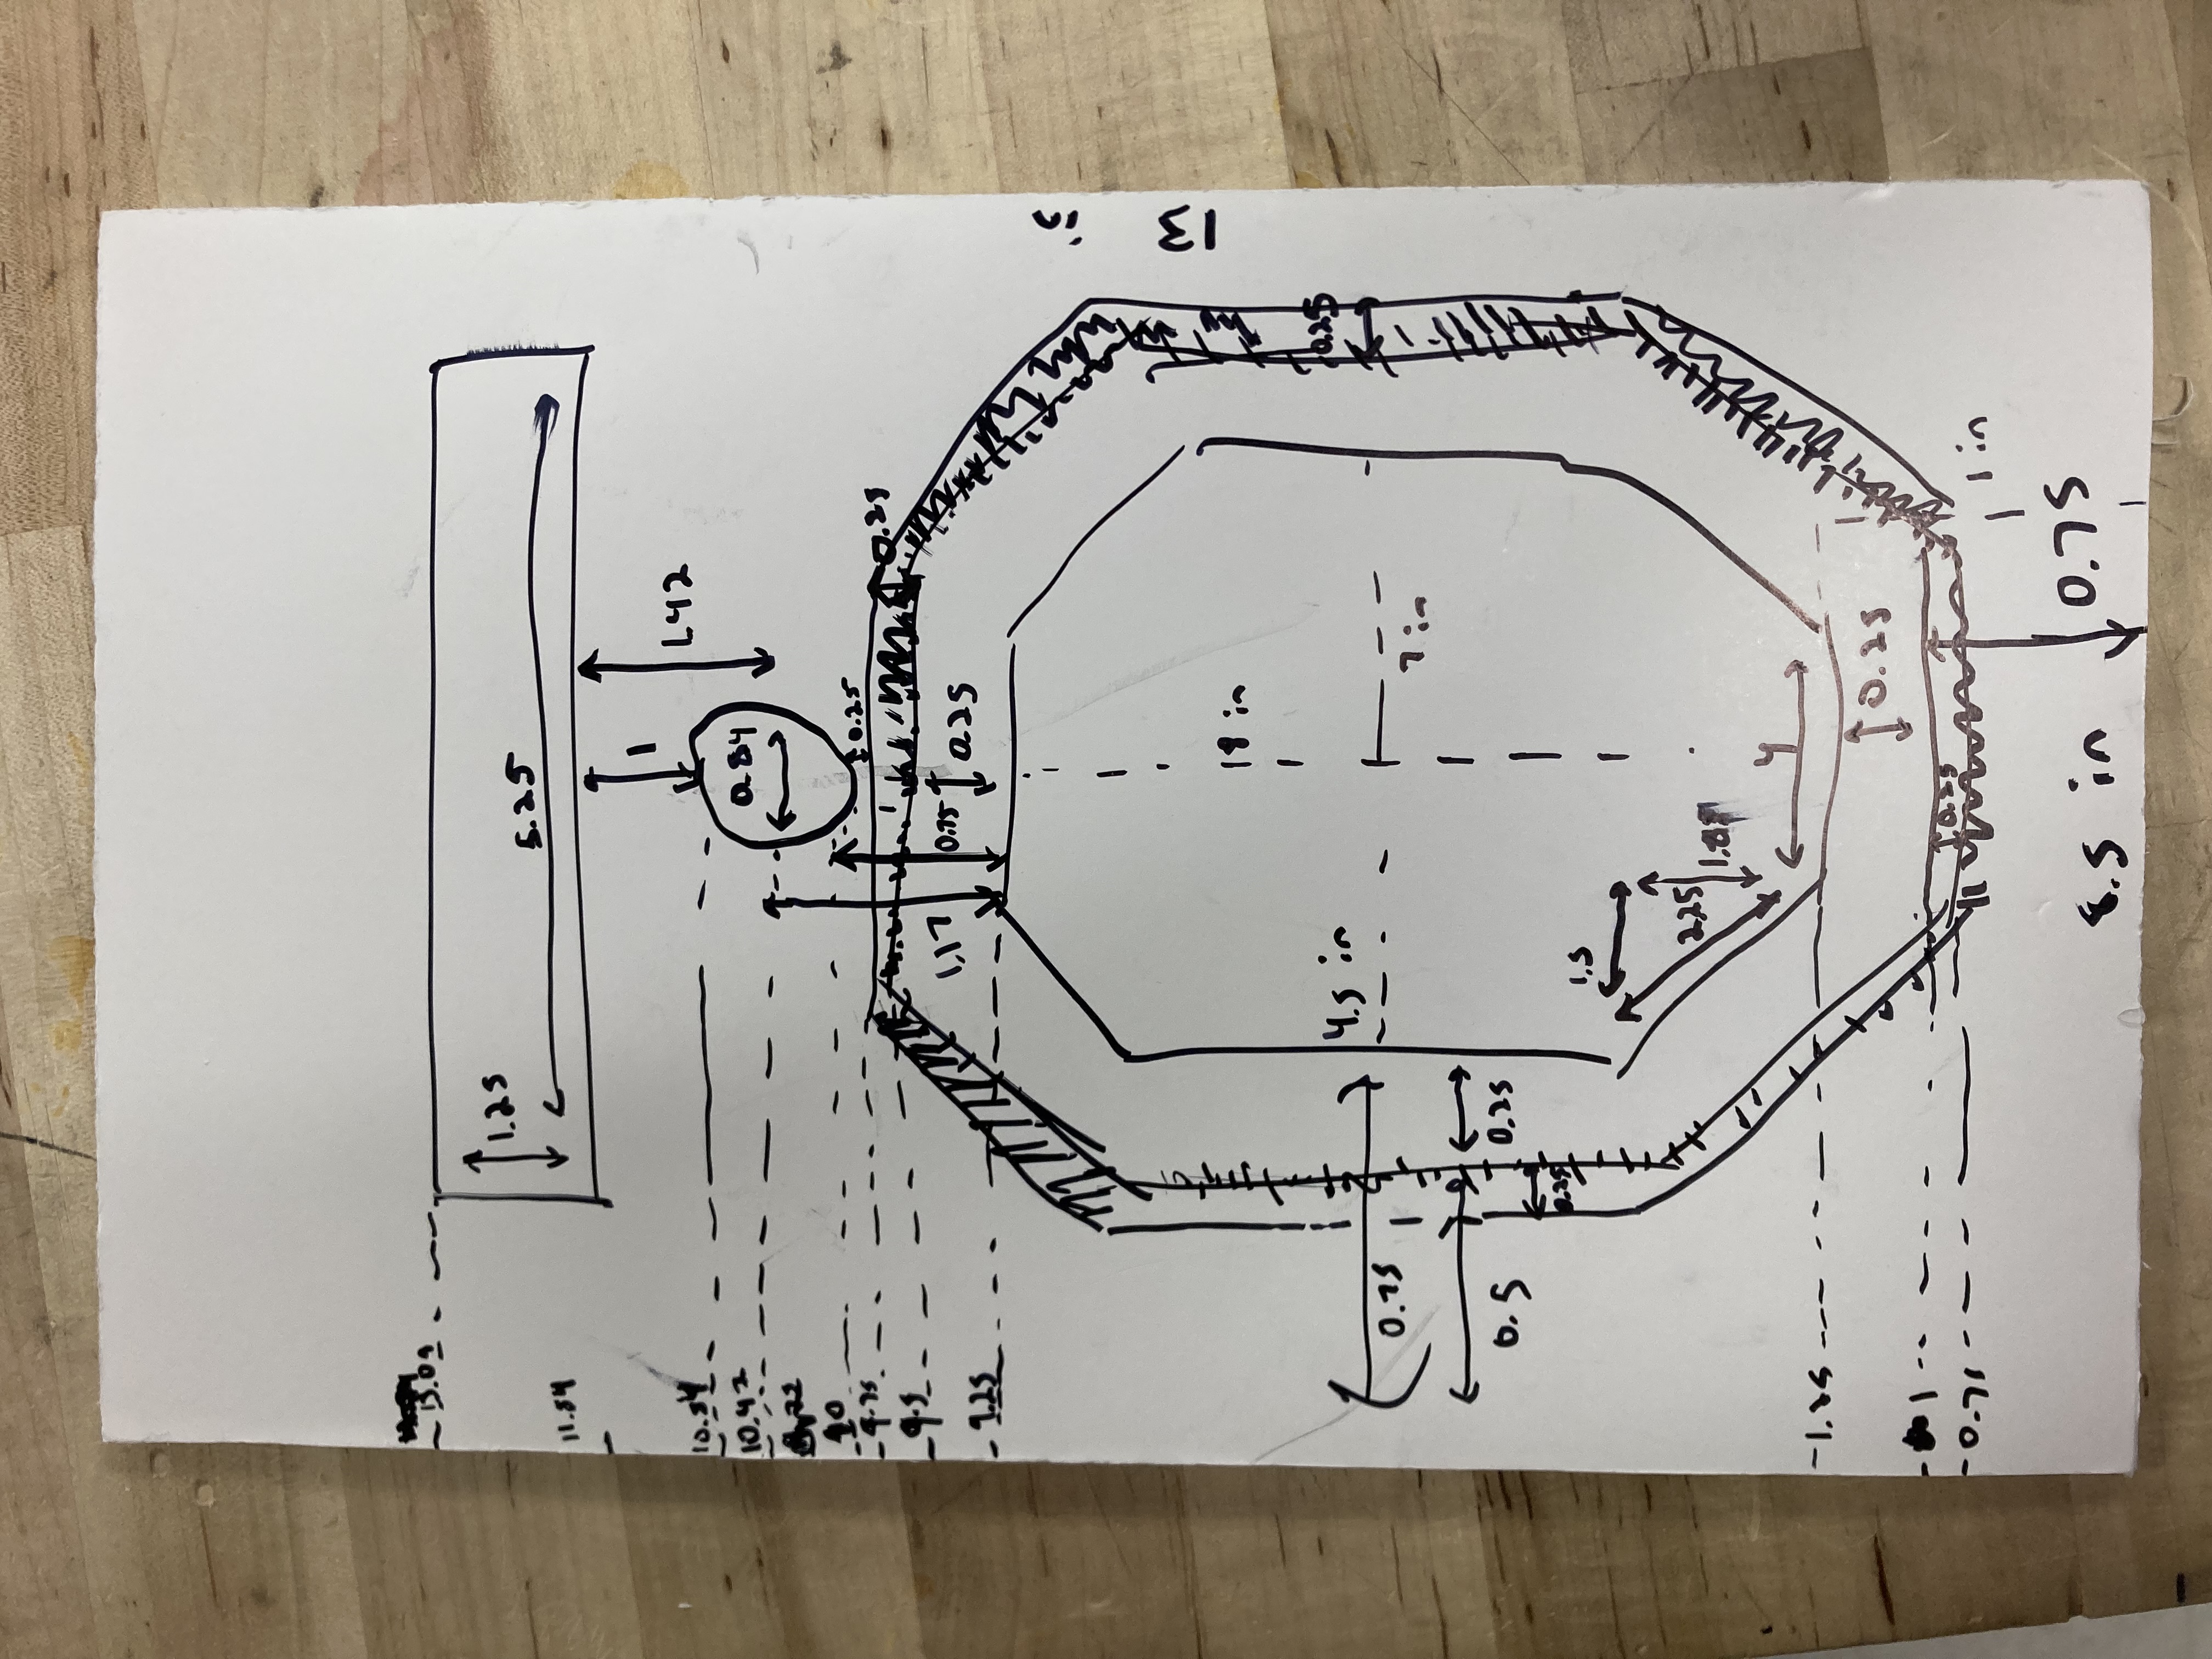 13.09
1.25
5.25
11.84
1
1.42
10.84
0.84
10.42
10
0.25
9.75
0.25
9.5
1.17
0.75
0.25
9.25
13 in
18 in
4.5 in
0.25
0.75
7 in
0.5
0.25
0.25
1.5
2.25
4
1.25
0.25
1
0.25
0.75
1 in
0.75
8.5 in